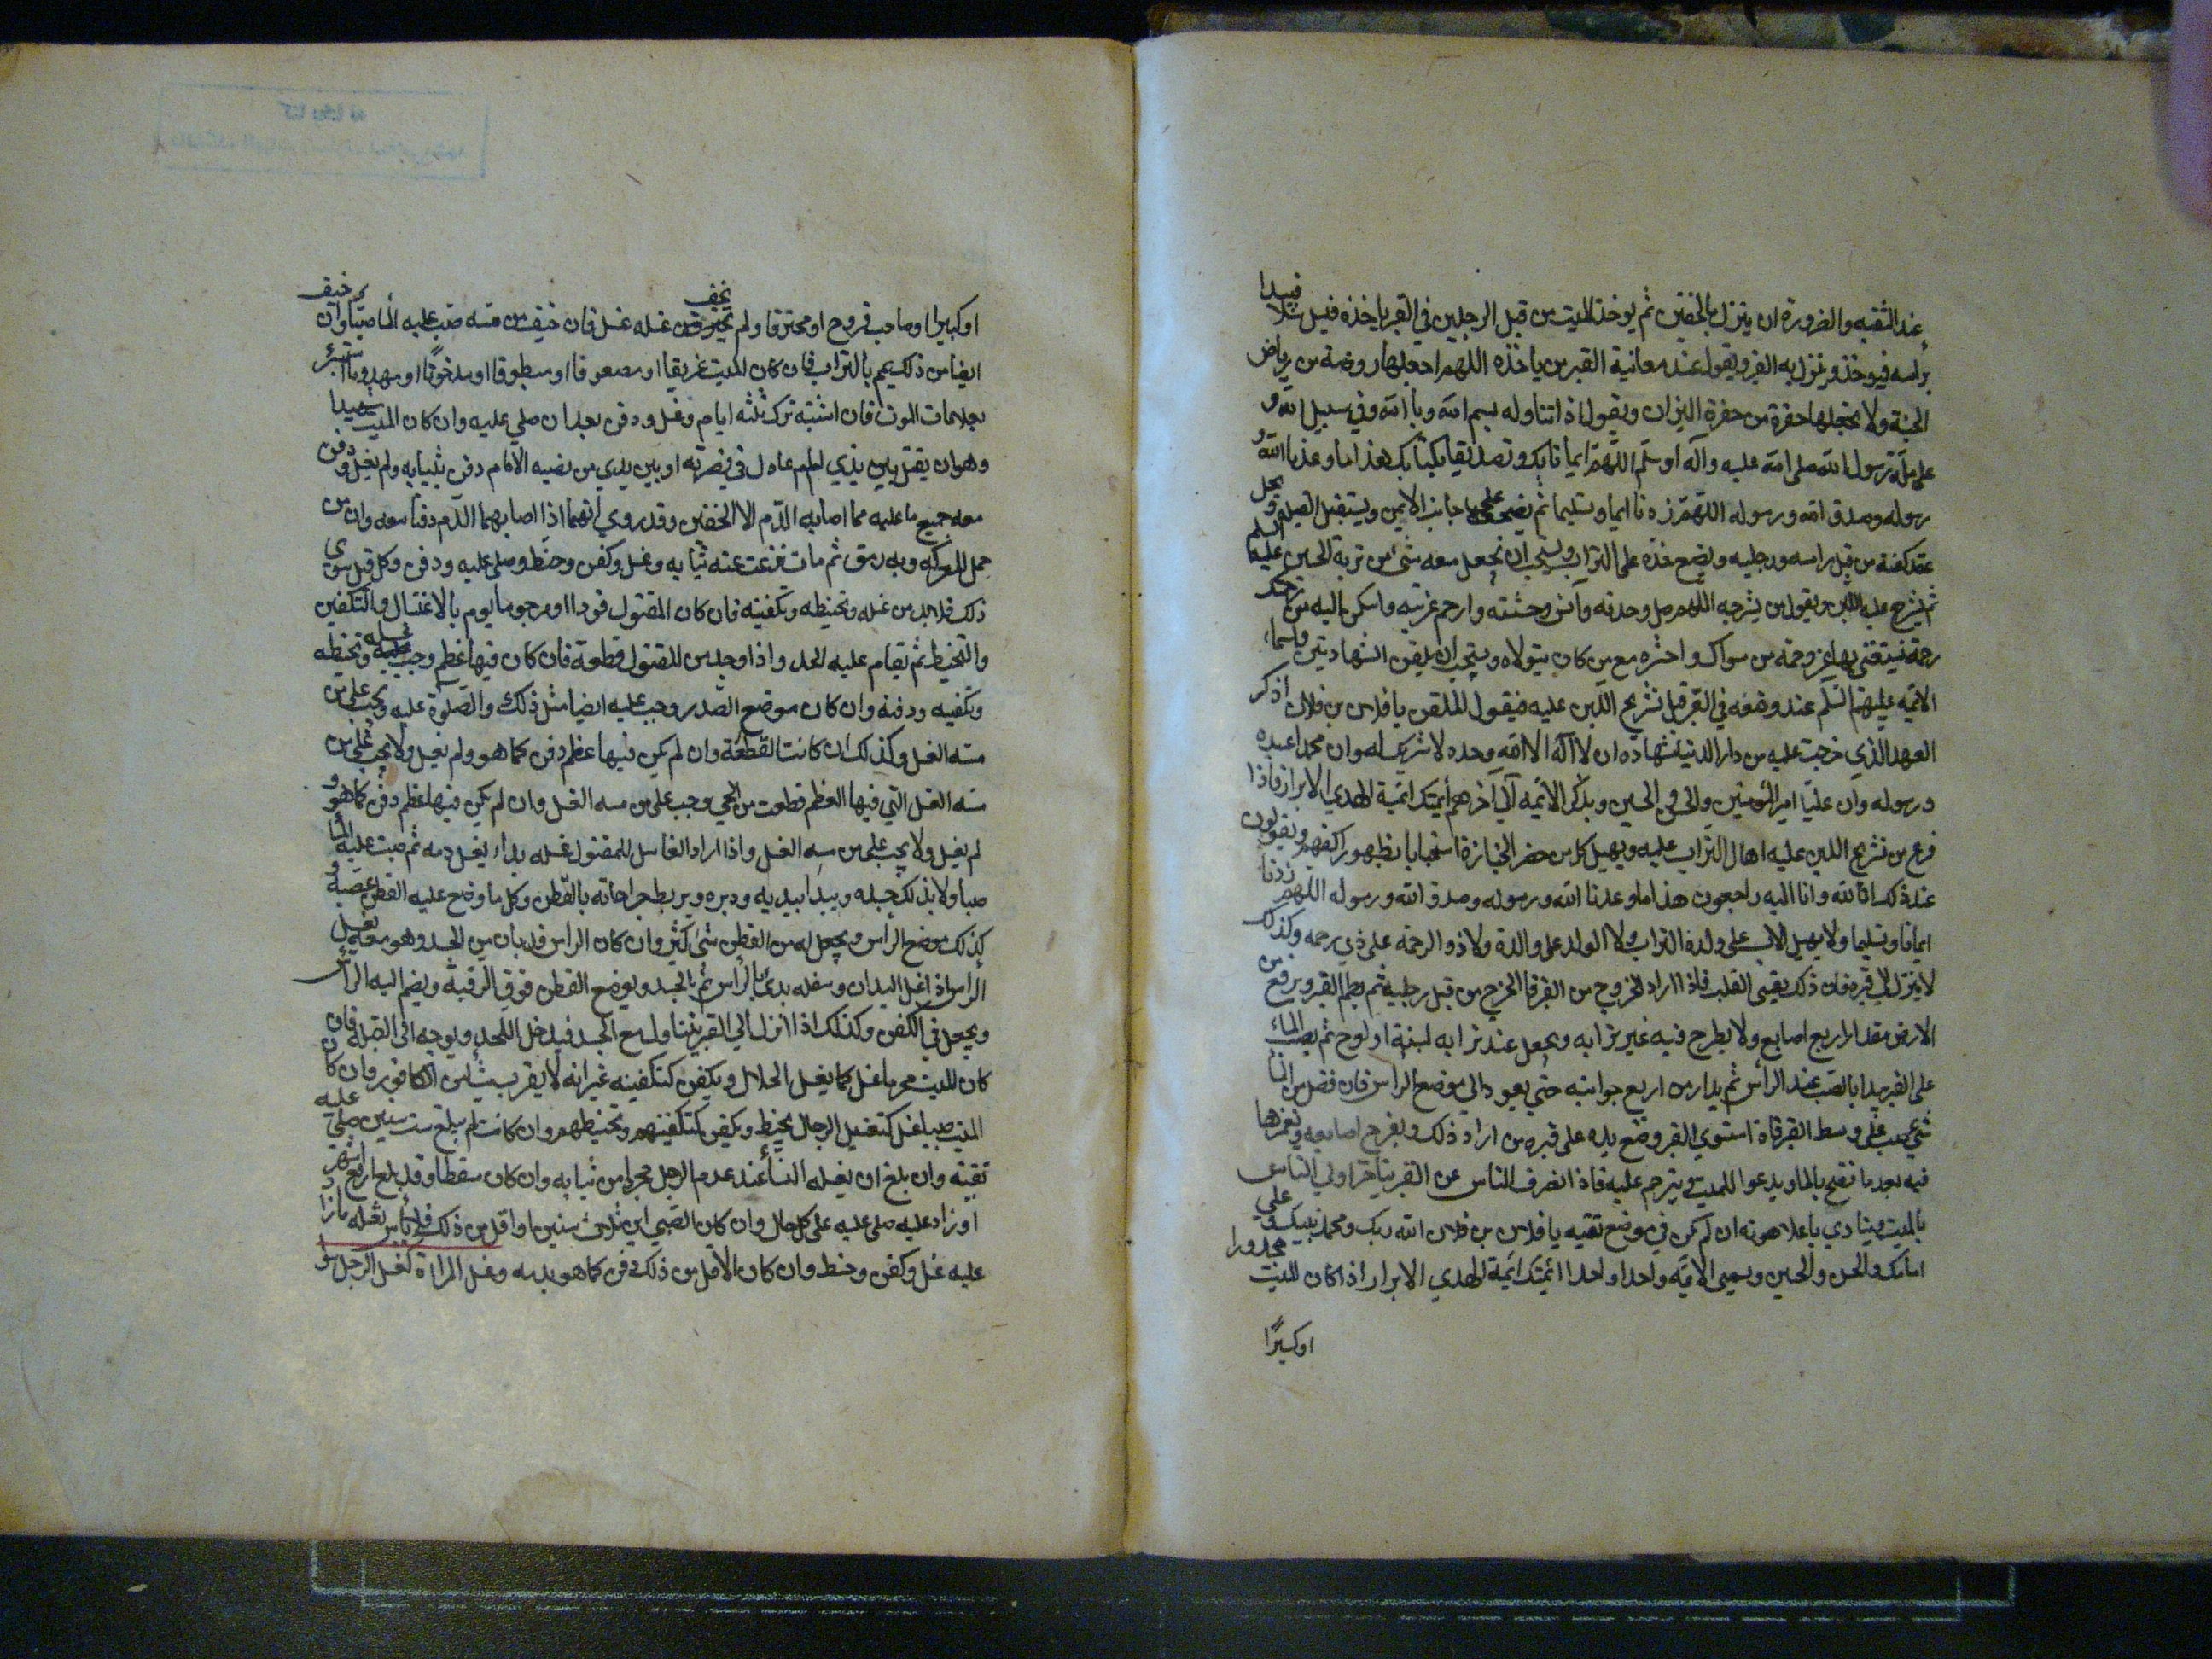 عند التقيه والضرورة ان ينزل بالخفين ثم يوخذ الميت من قبل الرجلين في القبر ياخذه فيسل سلا فيبدا
براسه فيوخذ وينزل به القبر ويقول عند معاينة القبر من ياخذه اللهم اجعلها روضة من رياض
الجنة ولا تجعلها حفرة من حفرة النيران ويقول اذا تناوله بسم الله وبالله وفي سبيل الله و
على ملة رسول الله صلى الله عليه وآله وسلم اللهم ايمانا بك وتصديقا بكتابك هذا ما وعدنا الله و
رسوله وصدق الله ورسوله اللهم زدنا ايمانا وتسليما ثم يضجعه على جانبه الايمن ويستقبل القبلة ويحل
عقد كفنه من قبل راسه ورجليه ويضع خده على التراب ويستحب ان يجعل معه شئ من تربة الحسين عليه السلم
ثم يشرج عليه اللبن ويقول من يشرجه اللهم صل وحدته وآنس وحشته وارحم غربته واسكن اليه من رحمتك
رحمة يستغني بها عن رحمة من سواك واحشره مع من كان يتولاه ويستحب ان يلقن الشهادتين واسماء
الائمة عليهم السلم عند وضعه في القبر قبل تشريج اللبن عليه فيقول الملقن يا فلان بن فلان اذكر
العهد الذي خرجت عليه من دار الدنيا شهادة ان لا اله الا الله وحده لا شريك له وان محمدا عبده
ورسوله وان عليا امير المؤمنين والحسن والحسين ويذكر الائمة الى آخرهم أئمتك ائمة الهدى الابرار فاذا
فرغ من تشريج اللبن عليه اهال التراب عليه ويهيل كل من حضر الجنازة استحبابا بظهور اكفهم ويقولون
عند ذلك انا لله وانا اليه راجعون هذا ما وعدنا الله ورسوله وصدق الله ورسوله اللهم زدنا
ايمانا وتسليما ولا يهيل الاب على ولده التراب ولا الولد على والده ولا ذو الرحمة على ذي رحمه وكذلك
لا ينزل الى قبره فان ذلك يقسي القلب فاذا اراد الخروج من القبر فليخرج من قبل رجليه ثم يطم القبر ويرفع من
الارض مقدار اربع اصابع ولا يطرح فيه غير ترابه ويجعل عند ترابه لبنة او لوح ثم يصب الماء
على القبر يبدا بالصب عند الرأس ثم يدار من اربع جوانبه حتى يعود الى موضع الراس فان فضل من الماء
شئ صب على وسط القبر فاذا استوي القبر وضع يده على قبره من اراد ذلك ويفرج اصابعه ويغمزها
فيه بعد ما نضح بالماء ويدعوا للميت ويترحم عليه فاذا انصرف الناس عن القبر يتاخر اولي الناس
بالميت وينادي باعلا صوته ان لم يكن في موضع تقيه يا فلان بن فلان الله ربك ومحمد نبيك وعلي
امامك والحسن والحسين ويسمي الائمة واحدا واحدا ائمتك ائمة الهدى الابرار اذا كان الميت مجدورا
او كسيرًا
او كسيرا او صاحب قروح او محترقا ولم يخف من غسله غسل فان خيف من مسه صب عليه الماء صبا وان خيف
ايضا من ذلك يمم بالتراب فان كان الميت غريقا او مصعوقا او مبطونا او مدخونًا او مهدوما استبرئ
بعلامات الموت فان اشتبه ترك ثلثة ايام وغسل ودفن بعد ان صلي عليه وان كان الميت شهيدا
وهو ان يقتل بين يدي امام عادل في نصرته او بين يدي من نصبه الامام دفن بثيابه ولم يغسل ودفن
معه جميع ما عليه مما اصابه الدم الا الخفين وقد روي انهما اذا اصابهما الدم دفنا معه وان من
حمل المعركه وبه رمق ثم مات نزعت عنه ثيابه وغسل وكفن وحنط وصلي عليه ودفن وكل قتيل سوي
ذلك فلا بد من غسله وتحنيطه وتكفينه فان كان المقتول قودا او مرجوما يوم بالاغتسال والتكفين
والتحنيط ثم يقام عليه الحد واذا وجد من المقتول قطعة فان كان فيها عظم وجب غسله وتحنيطه
وتكفينه ودفنه وان كان موضع الصدر وجب عليه ايضا مثل ذلك والصلوة عليه ويجب على من
مسه الغسل وكذلك ان كانت القطعة وان لم يكن فيها عظم دفن كما هو ولم يغسل ولا يجب على من
مسه الغسل التي فيها العظم قطعت من الحي وجب على من مسه الغسل وان لم يكن فيها عظم دفن كما هو و
لم يغسل ولا يجب على من مسه الغسل واذا اراد الغاسل للمقتول غسله بدا بغسل دمه ثم صب عليه الماء
صبا ولا يدلك جسده ويبدا بيديه ودبره ويربط جراحاته بالقطن وكل ما وضع عليه القطن عصبه و
كذلك موضع الرأس ويجعل له من القطن شئ كثير وان كان الراس قد بان من الجسد وهو معه يغسل
الراس اذا غسل اليدان وسفله بدئ بالرأس ثم بالجسد ويوضع القطن فوق الرقبة ويضم اليه الرأس
ويجعل في الكفن وكذلك اذا انزل الي القبر يتناول مع الجسد فيدخل اللحد ويوجه الى القبلة فان
كان الميت محرما غسل كما يغسل الحلال ويكفن كتكفينه غير انه لا يقرب شئ من الكافور وان كان
الميت صبيا غسل كتغسيل الرجال يحنط ويكفن كتكفينهم وتحنيطهم وان كانت لم يبلغ ست سنين صلي عليه
تقية وان بلغ ان يغسله النساء عند عدم الرجل مجردا من ثيابه وان كان سقطا وقد بلغ اربع اشهر
او زاد عليه صلي عليه على كل حال وان كان الصبي ابن ثلاث سنين او اقل من ذلك فلا بأس بغسله
عليه غسل وكفن وحنط وان كان لاقل من ذلك دفن كما هو بدمه وغسل المرأة كغسل الرجل سوا